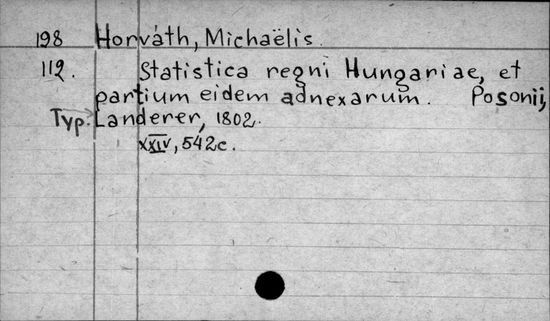 198 Horváth, Michaëlis.
112. Statistica regni Hungariae, et
partium eidem adnexarum. Posonii,
Typ. Landerer, 1802.
XXIV, 542c.